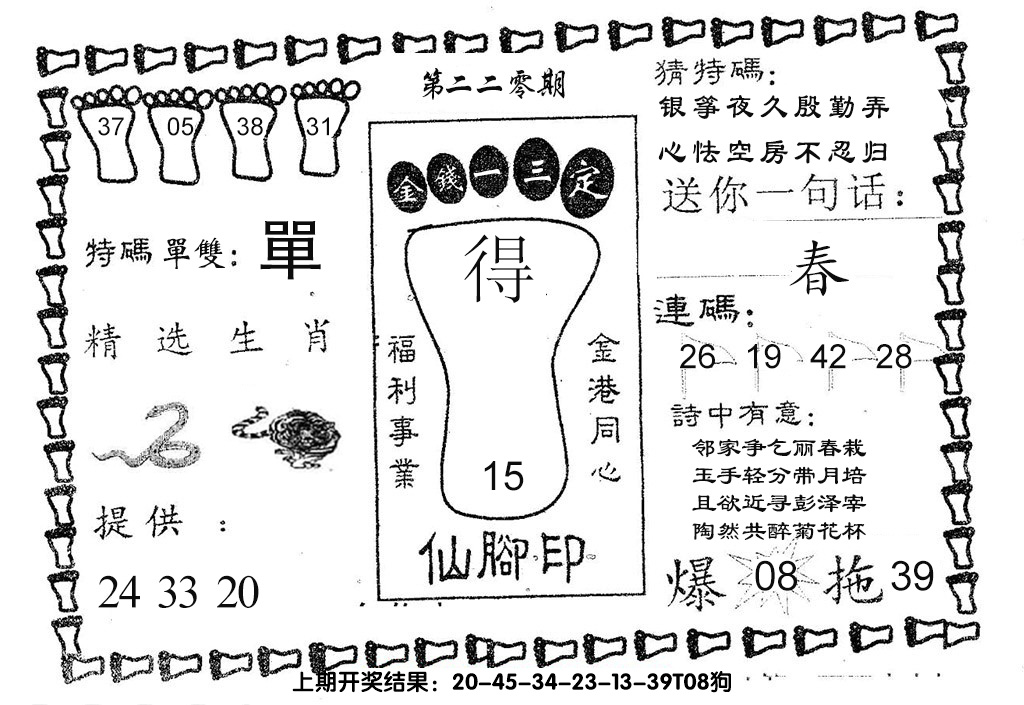 第二二零期
37 05 38 31
特碼單雙：單
精选生肖
提供：
24 33 20
金錢一三定
得
15
福利事業
金港同心
仙腳印
猜特碼：
银筝夜久殷勤弄
心怯空房不忍归
送你一句话：
春
連碼：
26 19 42 28
詩中有意：
邻家争乞丽春栽
玉手轻分带月培
且欲近寻彭泽宰
陶然共醉菊花杯
爆 08 拖 39
上期开奖结果：20-45-34-23-13-39T08狗